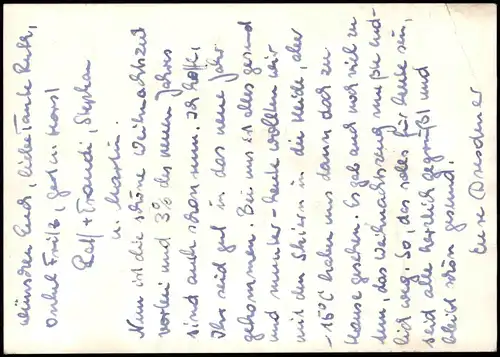 wünschen Euch, liebe Tante Ruth,
Onkel Fritz, Gerd u. Horst
Ralf + Traudi, Stephan
u. Martin.
Nun ist die schöne Weihnachtszeit
vorbei und 3% des neuen Jahres
sind auch schon rum. Ich hoffe,
Ihr seid gut in das neue Jahr
gekommen. Bei uns ist alles gesund
und munter - heute wollten wir
mit den Skiern in die Heide, aber
-15°C haben uns dann doch zu
Hause gesehen. Es gab auch noch viel zu
tun, das Weihnachtszeug mußte end-
lich weg. So, das solls für heute sein,
seid alle herzlich gegrüßt und
bleibt schön gesund.
Eure Dresdner